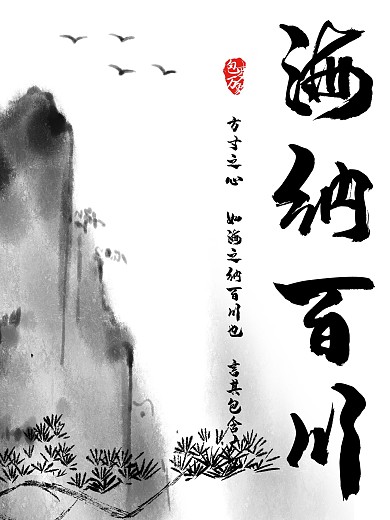 海纳百川
方寸之心 如海之纳百川也 言其包含